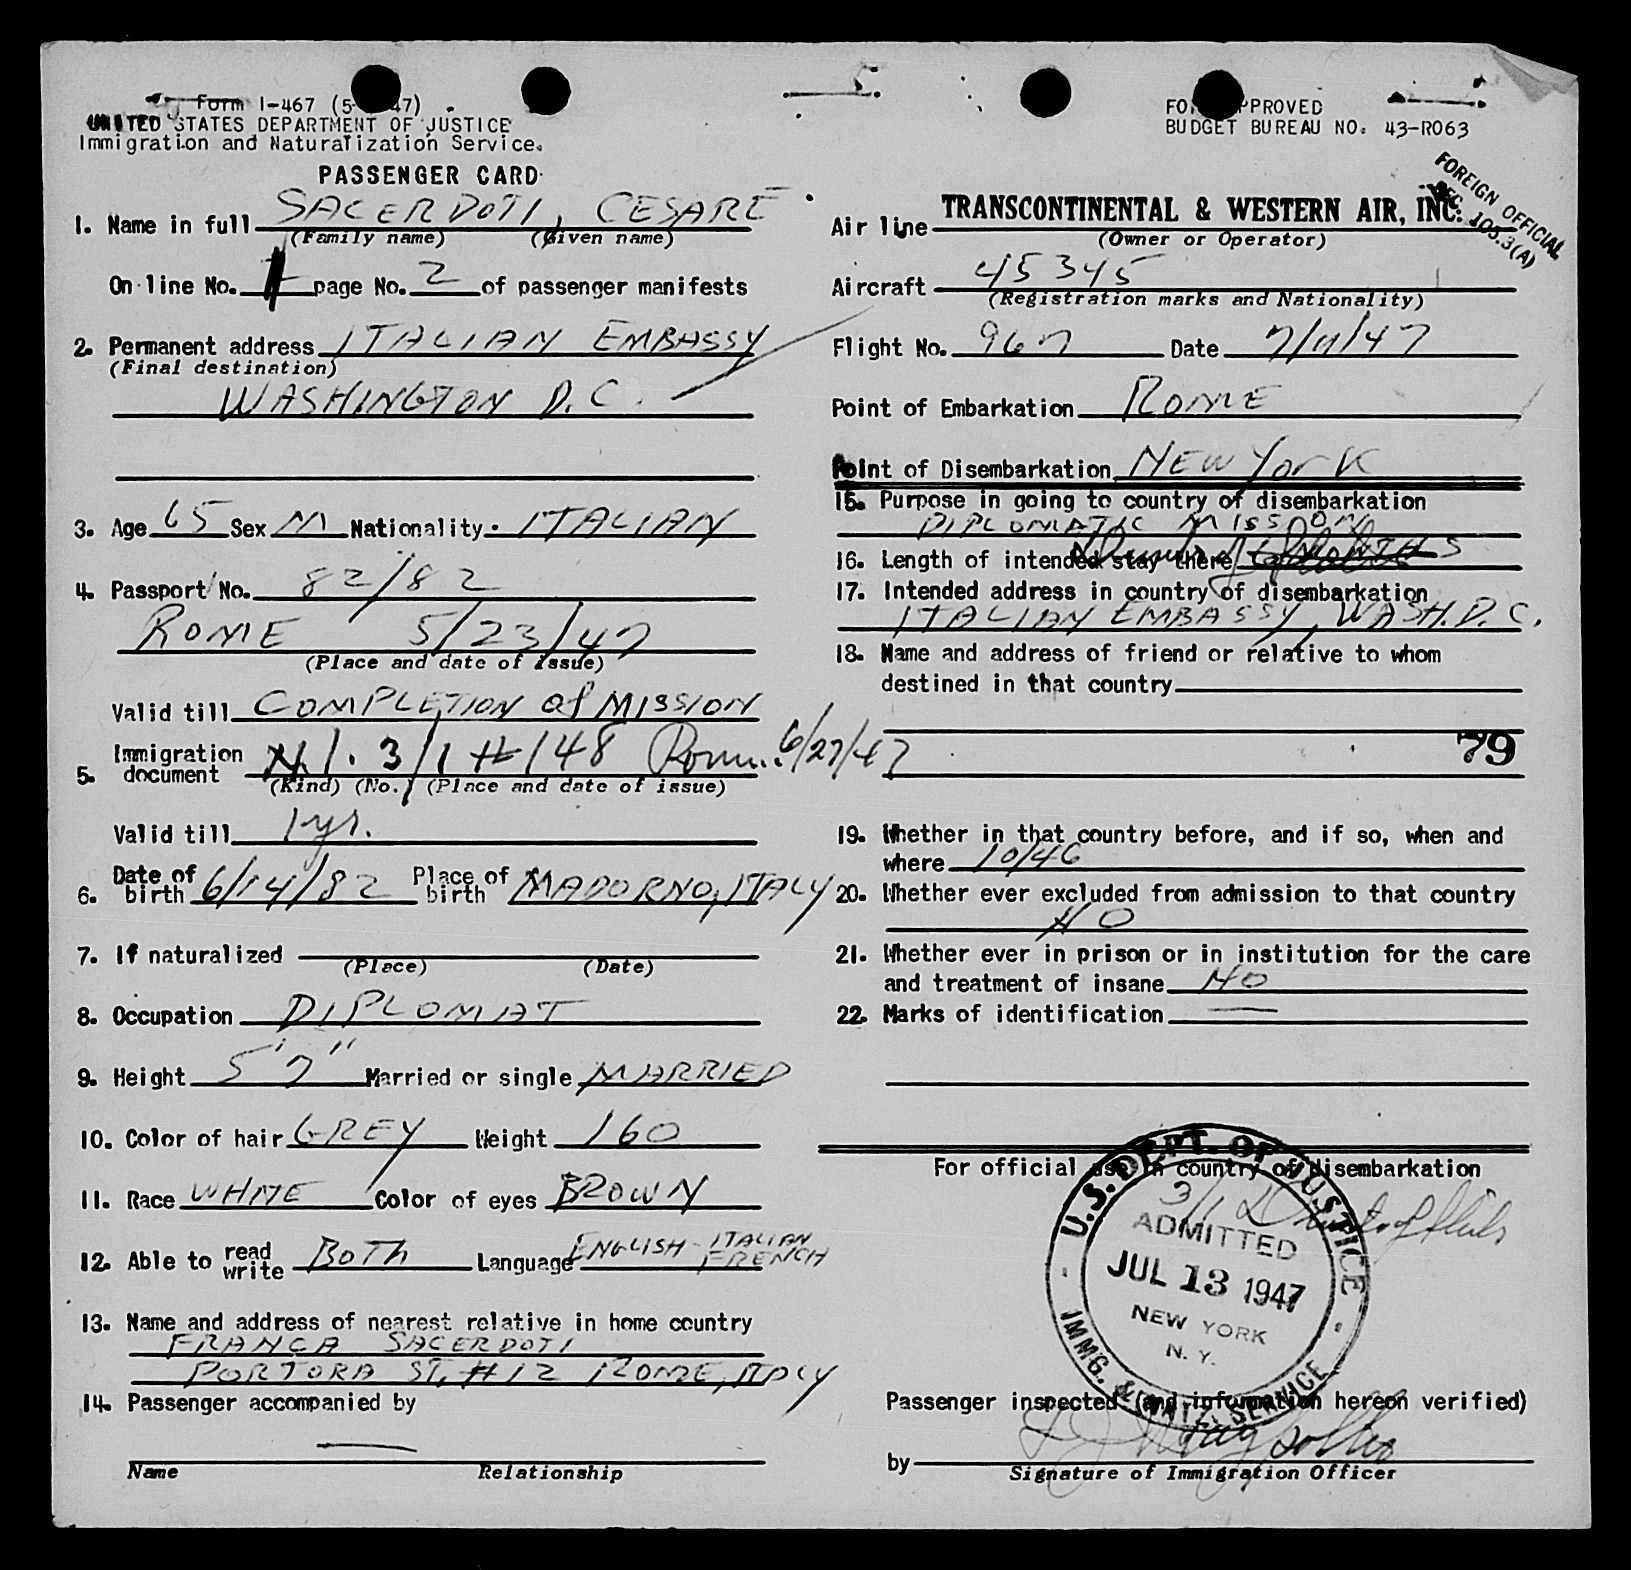 Form I-467 (5- 47)
UNITED STATES DEPARTMENT OF JUSTICE
Immigration and Naturalization Service.
PASSENGER CARD
1. Name in full SACERDOTI, CESARE
(Family name) (Given name)
On line No. 1 page No. 2 of passenger manifests
2. Permanent address ITALIAN EMBASSY
(Final destination)
WASHINGTON D.C.
3. Age 65 Sex M Nationality ITALIAN
4. Passport No. 82/82
ROME 5/23/47
(Place and date of issue)
Valid till COMPLETION of MISSION
5. Immigration document 3/1 #148 Rome 6/27/47
(Kind) (No.) (Place and date of issue)
Valid till 1 yr.
6. Date of birth 6/14/82 Place of birth MADORNO, ITALY
7. If naturalized
(Place) (Date)
8. Occupation DIPLOMAT
9. Height 5'7" Married or single MARRIED
10. Color of hair GREY Weight 160
11. Race WHITE Color of eyes BROWN
12. Able to read write BOTH Language ENGLISH - ITALIAN FRENCH
13. Name and address of nearest relative in home country
FRANCA SACERDOTI
PORTORA ST. #12 ROME, ITALY
14. Passenger accompanied by
—
Name Relationship
FORM APPROVED
BUDGET BUREAU NO. 43-R063
FOREIGN OFFICIAL
SEC. 105.3(A)
Air line TRANSCONTINENTAL & WESTERN AIR, INC.
(Owner or Operator)
Aircraft 45345
(Registration marks and Nationality)
Flight No. 967 Date 7/11/47
Point of Embarkation ROME
Point of Disembarkation NEW YORK
15. Purpose in going to country of disembarkation
DIPLOMATIC MISSION
16. Length of intended stay there Duration of Status
17. Intended address in country of disembarkation
ITALIAN EMBASSY, WASH. D.C.
18. Name and address of friend or relative to whom
destined in that country
79
19. Whether in that country before, and if so, when and
where 10/46
20. Whether ever excluded from admission to that country
NO
21. Whether ever in prison or in institution for the care
and treatment of insane NO
22. Marks of identification —
For official use in country of disembarkation
3/1 Duration of Status
U.S. DEPT. OF JUSTICE
ADMITTED
JUL 13 1947
NEW YORK
N. Y.
IMMG. & NATZ. SERVICE
Passenger inspected (and information hereon verified)
by
Signature of Immigration Officer